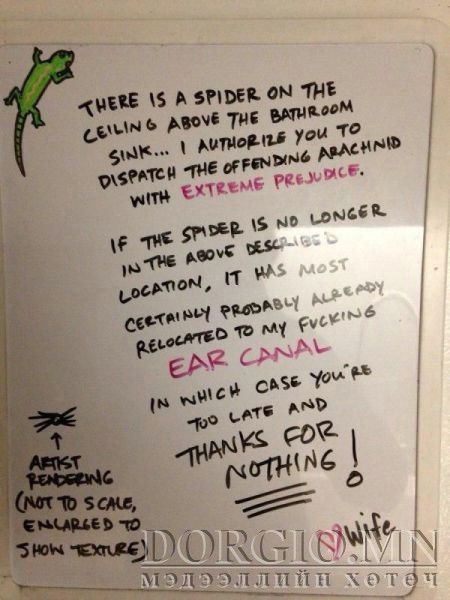 THERE IS A SPIDER ON THE
CEILING ABOVE THE BATHROOM
SINK... I AUTHORIZE YOU TO
DISPATCH THE OFFENDING ARACHNID
WITH EXTREME PREJUDICE.
IF THE SPIDER IS NO LONGER
IN THE ABOVE DESCRIBED
LOCATION, IT HAS MOST
CERTAINLY PROBABLY ALREADY
RELOCATED TO MY FUCKING
EAR CANAL
IN WHICH CASE YOU'RE
TOO LATE AND
THANKS FOR
NOTHING!
ARTIST
RENDERING
(NOT TO SCALE,
ENLARGED TO
SHOW TEXTURE)
Wife
DORGIO.MN
мэдээллийн хөтөч